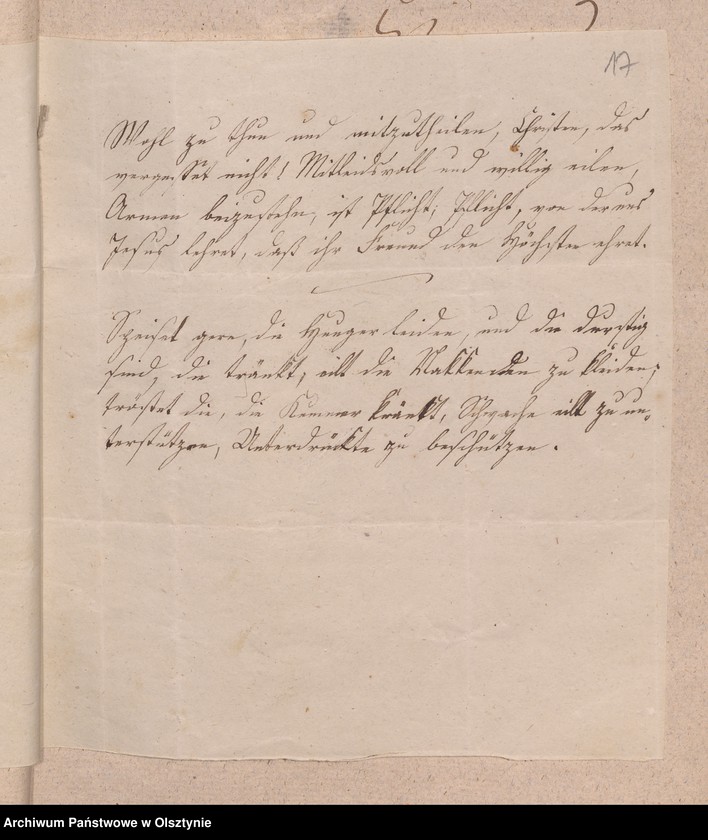 17
Wohl zu thun und mitzutheilen, Christen, das
vergesset nicht! Mitleidsvoll und willig eilen,
Armen beizustehn, ist Pflicht; Pflicht, von der uns
Jesus lehret, daß ihr Freund den Höchsten ehret.
Speiset gern, die Hunger leiden, und die durstig
sind, die tränkt; eilt die Nakkenden zu kleiden;
tröstet die, die Kummer kränkt, Schwache eilt zu un-
terstützen, Unterdrückte zu beschützen.
Archiwum Państwowe w Olsztynie